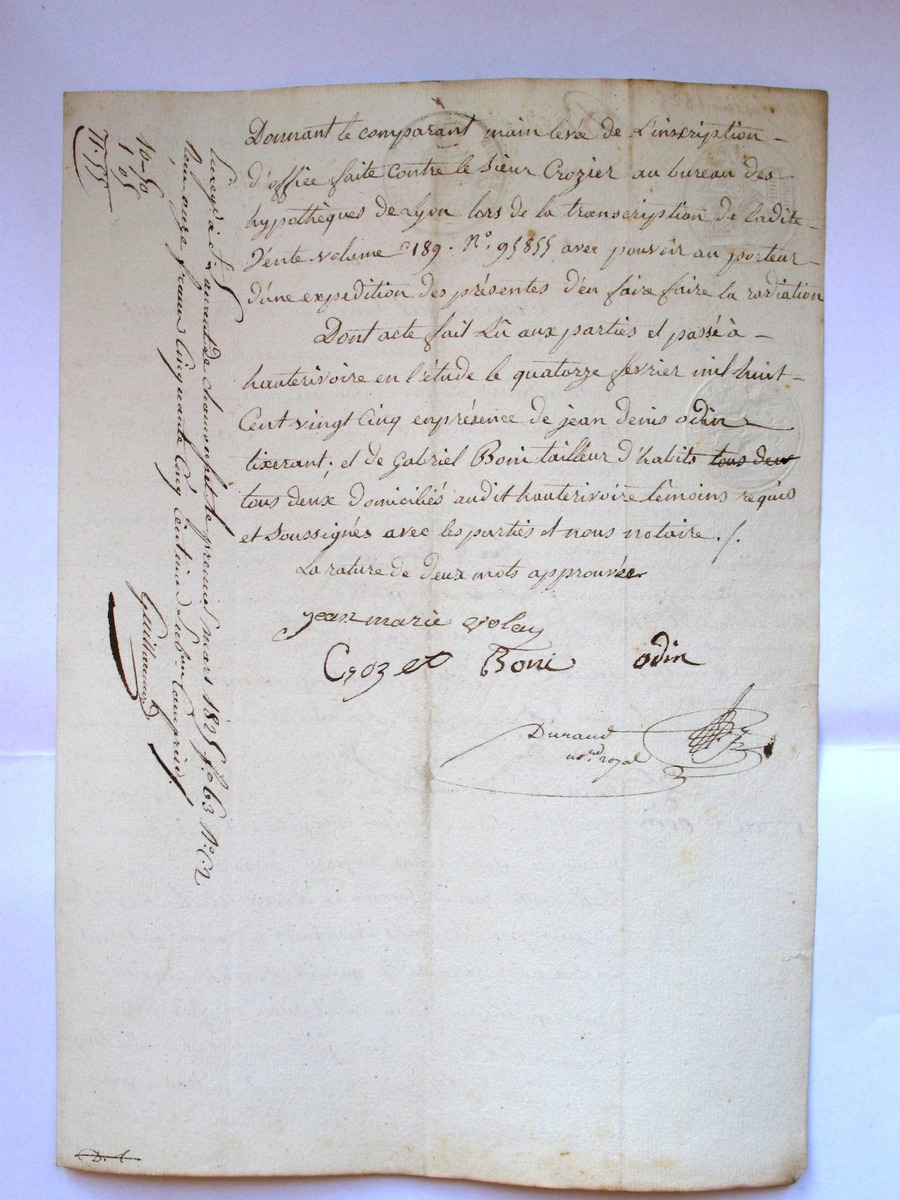 Donnant le comparant main levée de l'inscription
d'office faite contre le sieur Crozier au bureau des
hypothèques de Lyon lors de la transcription de ladite
Vente volume 189. N.º 95855 avec pouvoir au porteur
d'une expedition des présentes d'en faire faire la radiation
Dont acte fait Lû aux parties et passé à
hauterivoire en l'étude le quatorze fevrier mil huit
Cent vingt Cinq en présence de jean denis odin
tixerant; et de Gabriel Boni tailleur d'habits tous deux
tous deux domiciliés audit hauterivoire témoins requis
et soussignés avec les parties et nous notaire ./.
La rature de deux mots approuvée
jean marie volay
Crozet Boni odin
Durand
not.re royal
Enregé à St Laurent de chamousset le premier mars 1825 f.º 63 N.º C. 2
Reçu onze francs Cinquante Cinq Centimes Comprise
Guillaumet
10-50
1 05
11-55
D. L.